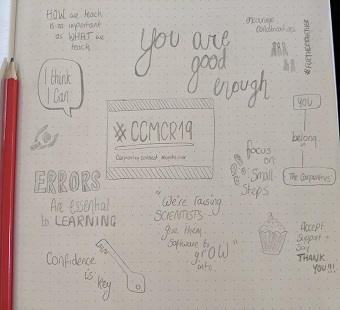 HOW we teach
is as important
as WHAT we
teach
You are
good
enough
encourage
I think
I Can
#CCMCR19
Carpentry Connect Manchester
YOU
belong
The Carpentries
focus
on
Small
Steps
ERRORS
Are essential
to LEARNING
"We're raising
SCIENTISTS
give them
Software to
grOW
into"
Confidence
is
key
Accept
Support +
Say
THANK
YOU!!!